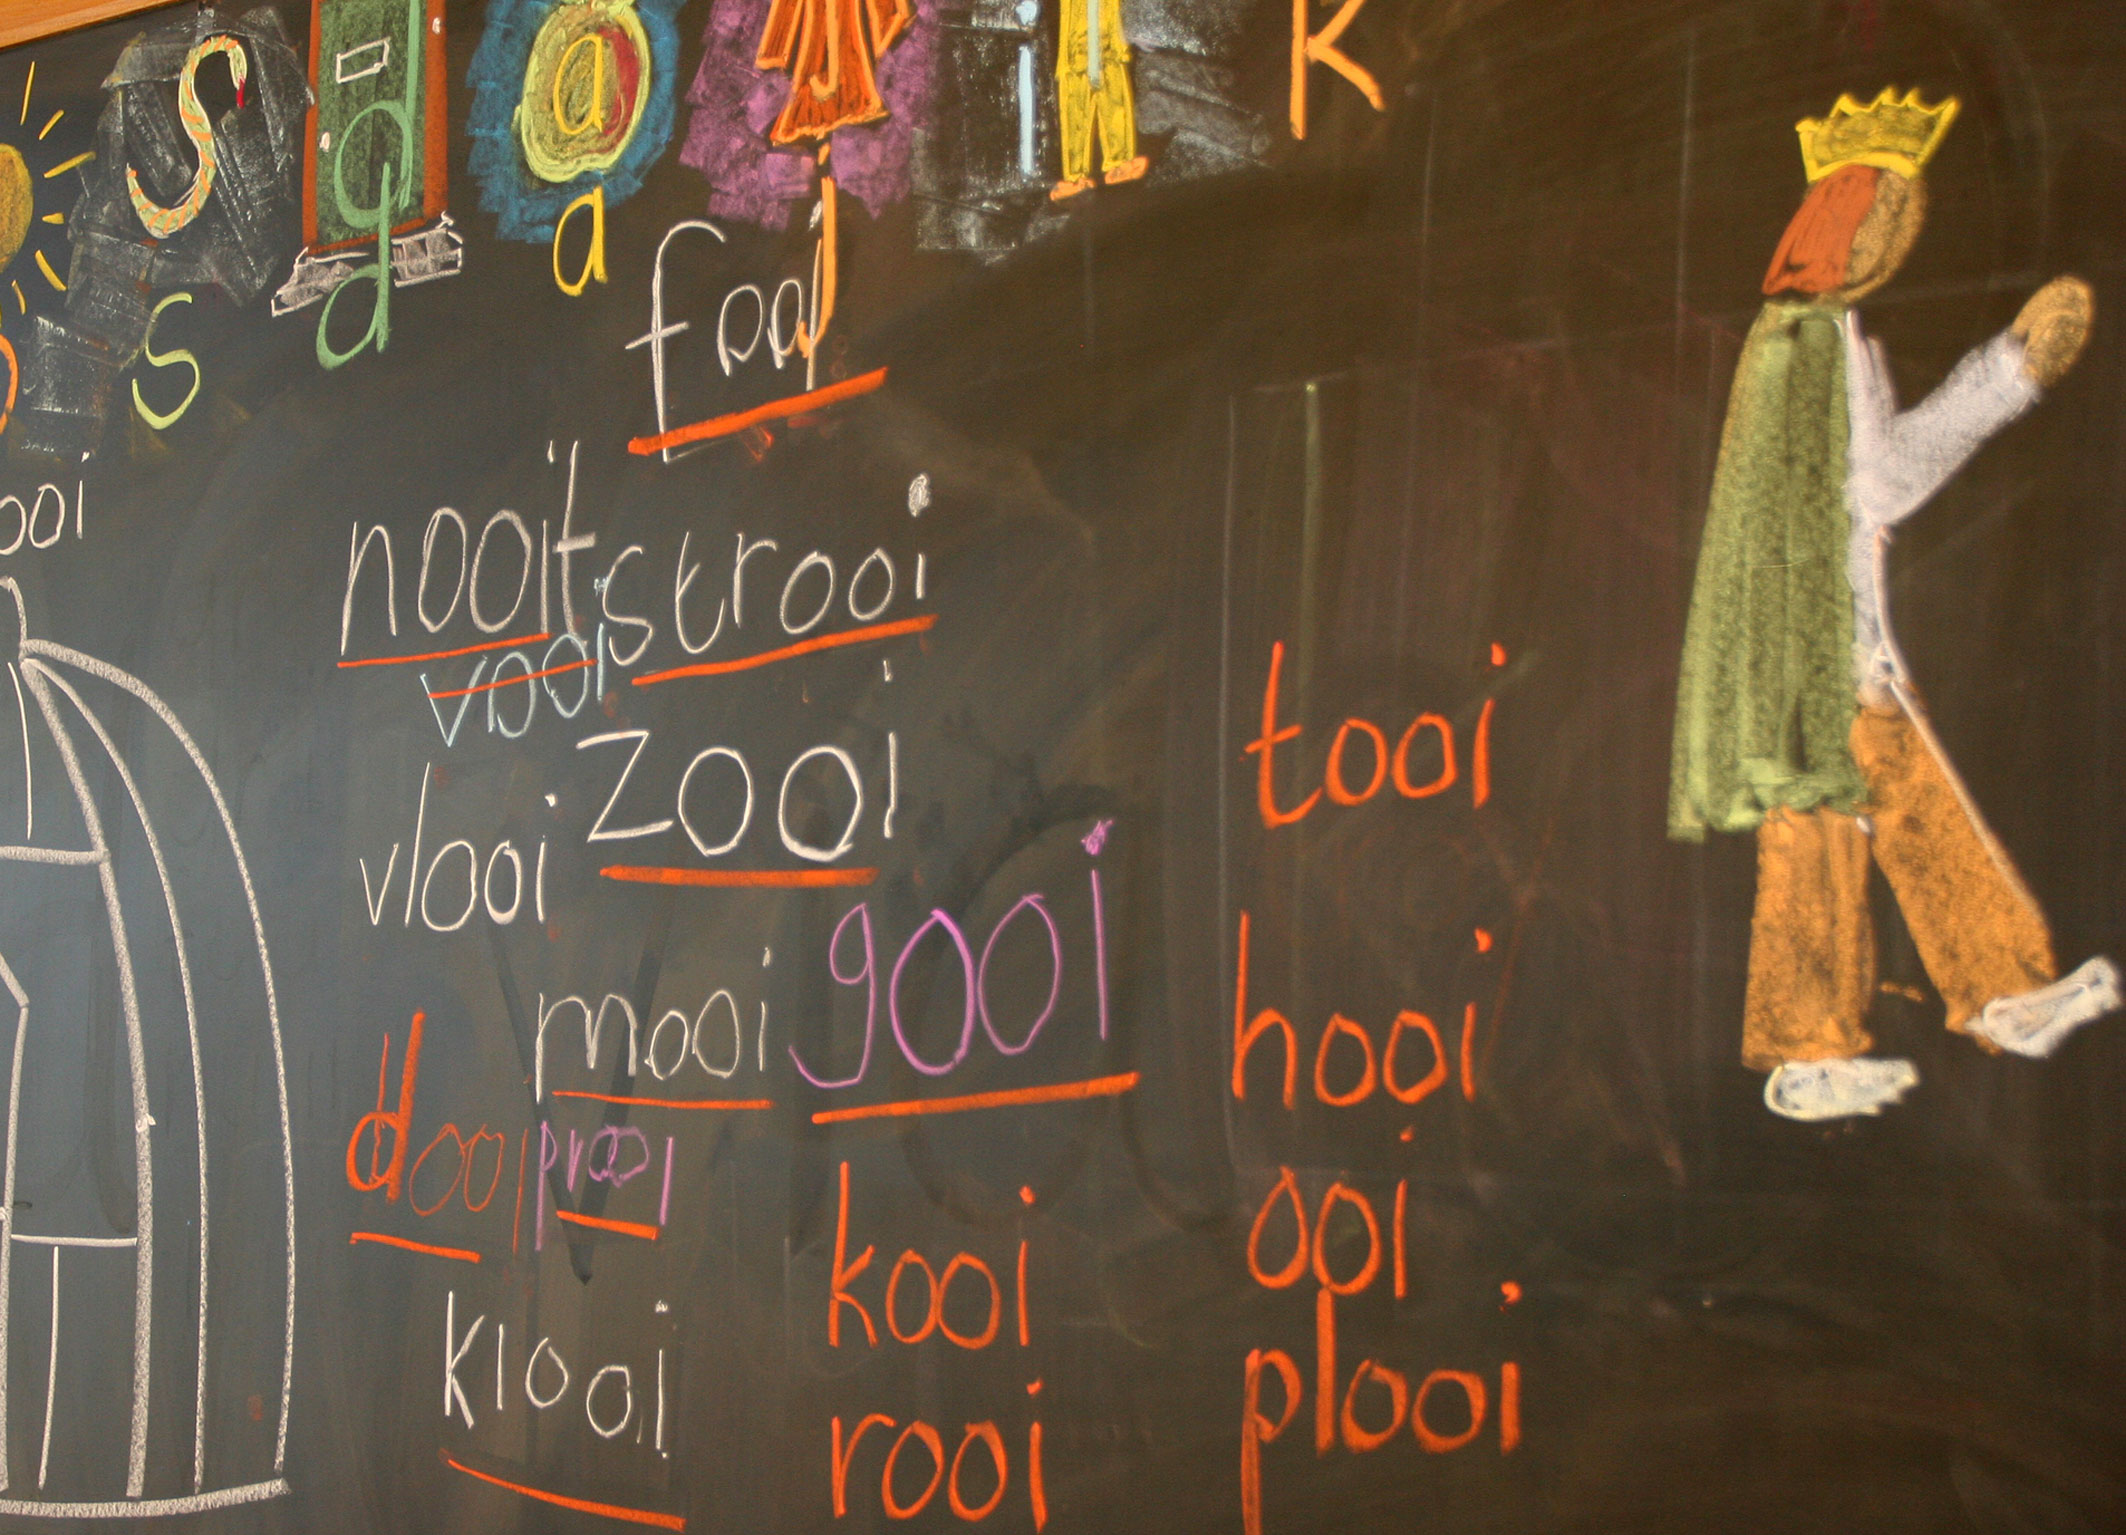 s d a j i k
s d a j
fooi
ooi
nooit strooi
vooi
zooi
vlooi
mooi gooi
dooi prooi
klooi
kooi
rooi
tooi
hooi
ooi
plooi